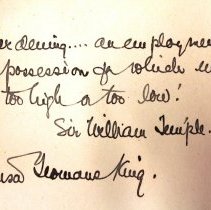 dening.... an employmen
possession of which
too high or too low!
Sir William Temple.
Yeomans King.